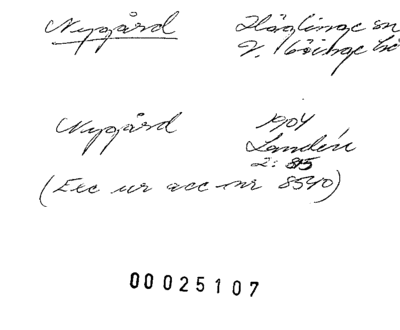 Nygård Häglinge sn
V. Göinge hd
Nygård 1904
Landén
2: 85
(Exc ur acc nr 8540)
00025107